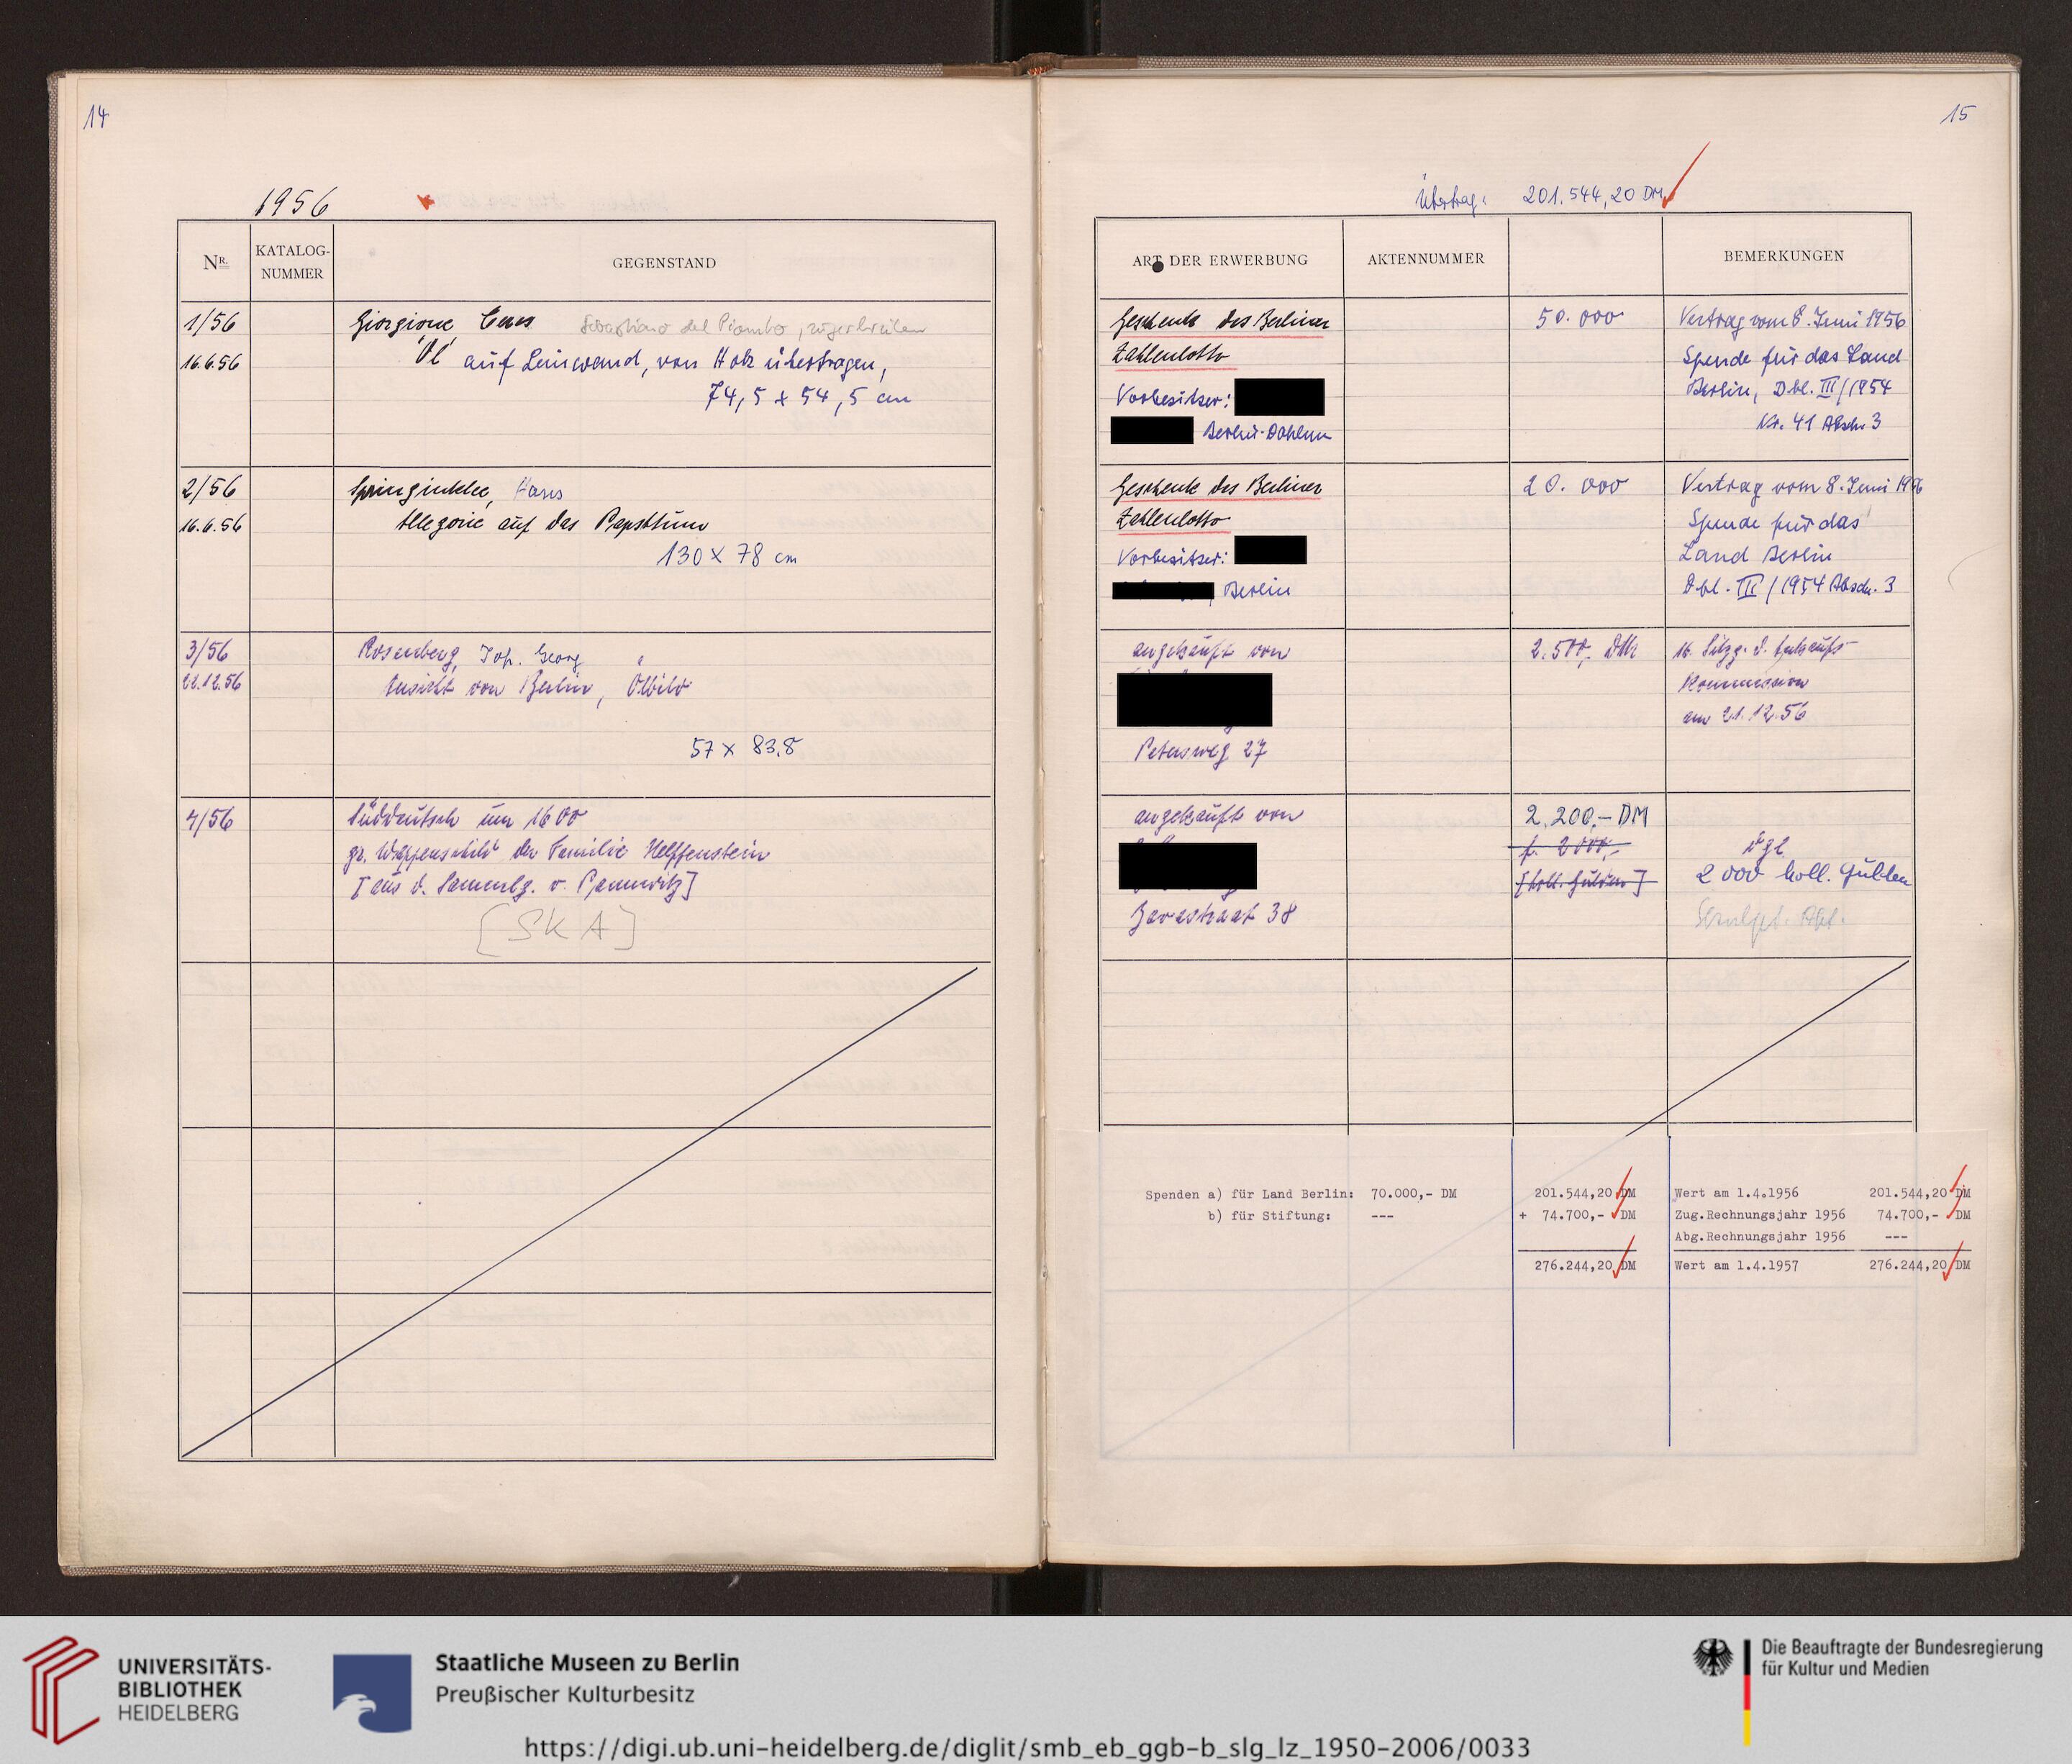 14
1956
NR.
KATALOG-
NUMMER
GEGENSTAND
1/56
Giorgione Ceres Sebastiano del Piombo, zugeschrieben
16.6.56
Öl auf Leinwand, von Holz übertragen,
74,5 x 54,5 cm
2/56
Springinklee, Hans
16.6.56
Allegorie auf das Papsttum
130 x 78 cm
3/56
Rosenberg, Joh. Georg
21.12.56
Ansicht von Berlin, Ölbild
57 x 83,8
4/56
Süddeutsch um 1600
gr. Wappenschild der Familie Helffenstein
[aus d. Sammlg. v. Pannwitz]
[SKA]
15
Übertrag: 201.544,20 DM
ART DER ERWERBUNG
AKTENNUMMER
BEMERKUNGEN
Geschenk des Berliner
Zahlenlotto
Vorbesitzer:
Berlin-Dahlem
50.000
Vertrag vom 8. Juni 1956
Spende für das Land
Berlin, Dbl. III/1954
Nr. 41 Abschn. 3
Geschenk des Berliner
Zahlenlotto
Vorbesitzer:
, Berlin
20.000
Vertrag vom 8. Juni 1956
Spende für das
Land Berlin
Dbl. III/1954 Abschn. 3
angekauft von
Petersweg 27
2.500,- DM
16. Sitzg. d. Ankaufs-
Kommission
am 21.12.56
angekauft von
Javastraat 38
2.200,- DM
f. 2000,-
[holl. Gulden]
vgl.
2000 holl. Gulden
Skulpt. Abt.
Spenden a) für Land Berlin: 70.000,- DM
b) für Stiftung: ---
201.544,20 DM
+ 74.700,- DM
276.244,20 DM
Wert am 1.4.1956 201.544,20 DM
Zug.Rechnungsjahr 1956 74.700,- DM
Abg.Rechnungsjahr 1956 ---
Wert am 1.4.1957 276.244,20 DM
UNIVERSITÄTS-
BIBLIOTHEK
HEIDELBERG
Staatliche Museen zu Berlin
Preußischer Kulturbesitz
Die Beauftragte der Bundesregierung
für Kultur und Medien
https://digi.ub.uni-heidelberg.de/diglit/smb_eb_ggb-b_slg_lz_1950-2006/0033